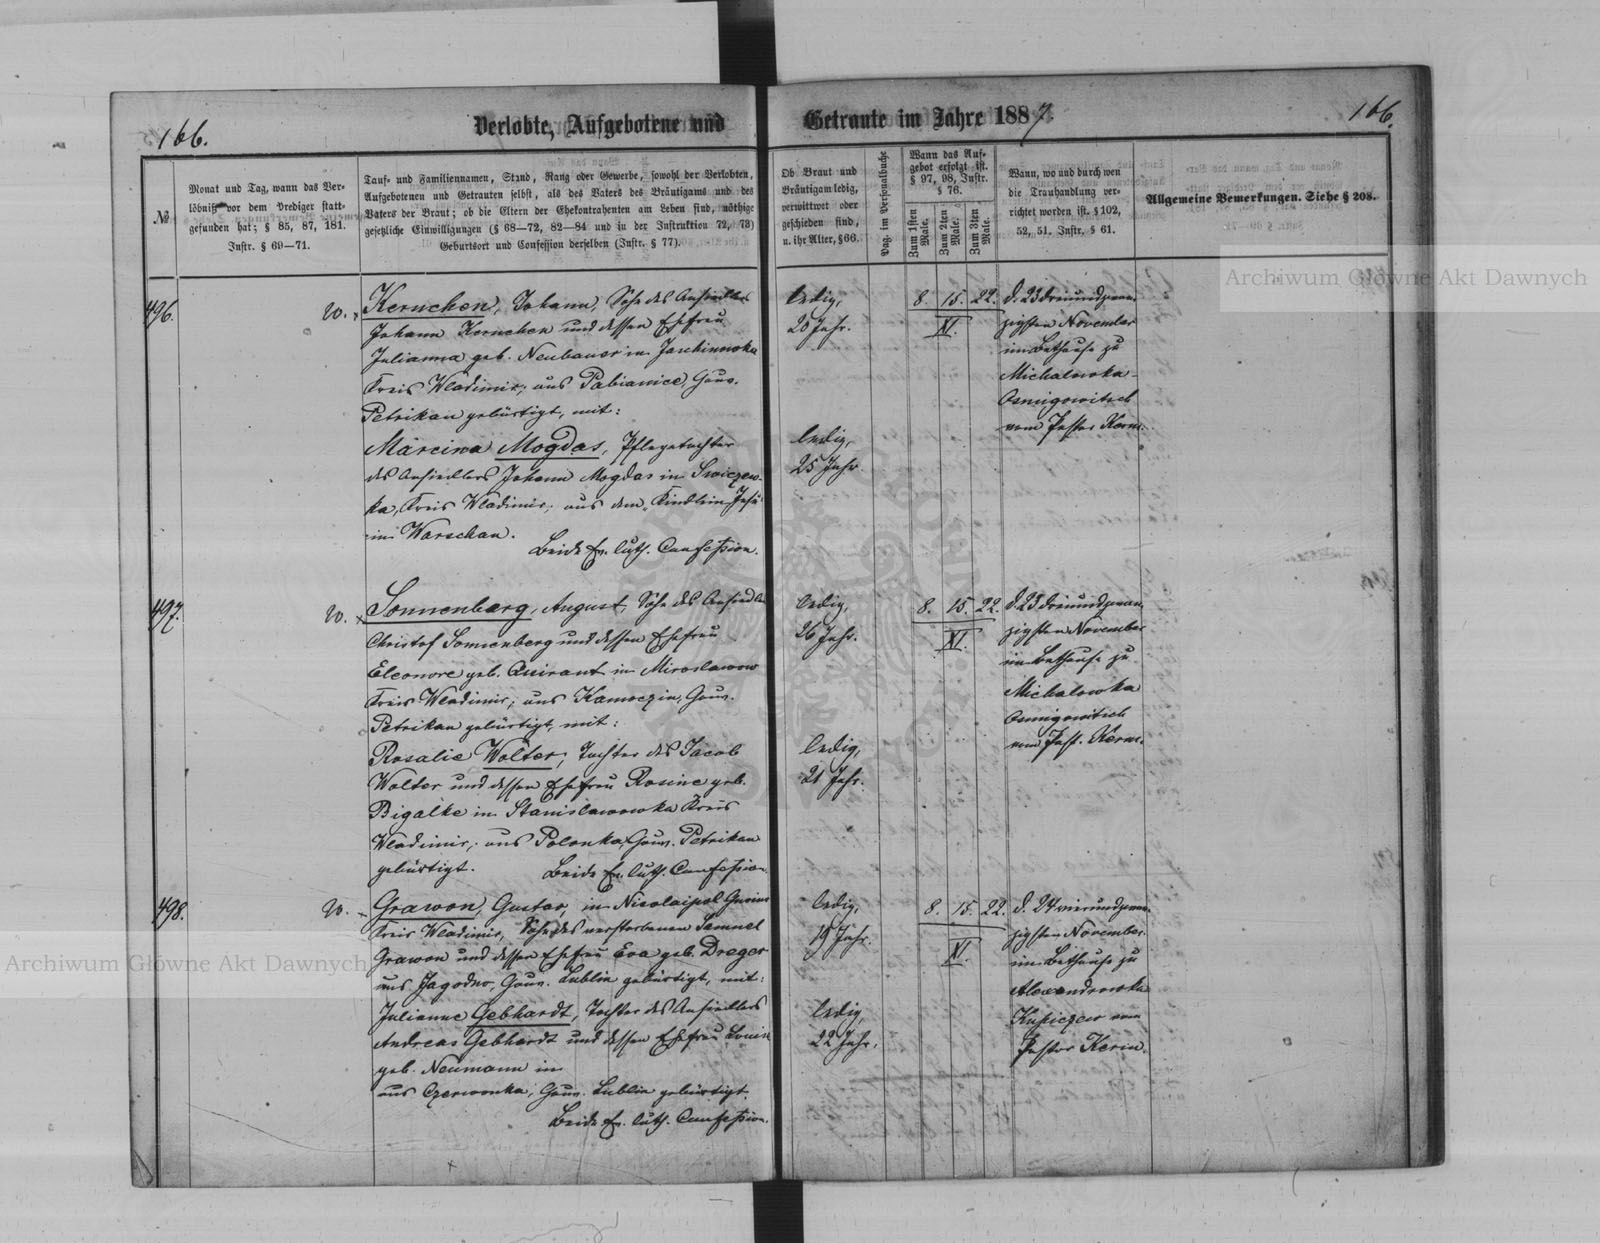 166.
Verlobte, Aufgebotene und
Getraute im Jahre 1887.
166.
№
Monat und Tag, wann das Ver-
löbniß vor dem Prediger statt-
gefunden hat; § 85, 87, 181.
Instr. § 69—71.
Tauf- und Familiennamen, Stand, Rang oder Gewerbe, sowohl der Verlobten,
Aufgebotenen und Getrauten selbst, als des Vaters des Bräutigams und des
Vaters der Braut; ob die Eltern der Ehekontrahenten am Leben sind, nöthige
gesetzliche Einwilligungen (§ 68—72, 82—84 und in der Instruktion 72, 73)
Geburtsort und Confession derselben (Instr. § 77).
Ob Braut und
Bräutigam ledig,
verwittwet oder
geschieden sind,
u. ihr Alter, § 66.
Pag. im Personalbuche
Wann das Auf-
gebot erfolgt ist.
§ 97, 98, Instr.
§ 76.
Zum 1sten Male.
Zum 2ten Male.
Zum 3ten Male.
Wann, wo und durch wen
die Trauhandlung ver-
richtet worden ist. § 102,
52, 51. Instr. § 61.
Allgemeine Bemerkungen. Siehe § 208.
496.
W.
Kernchen, Johann, Sohn des Ansiedlers
Johann Kernchen und dessen Ehefrau
Julianna geb. Neubauer in
Kreis Wladimir; aus Pabianice, Gouv.
Petrikau gebürtigt, mit:
Marcina Mogdas, Pflegetochter
des Ansiedlers Johann Mogdas in
ka, Kreis Wladimir; aus dem "Kindlein Jesu"
in Warschau.
Beide Ev. luth. Confession.
ledig,
20 Jahr.
ledig,
25 Jahr
8. 15. 22.
XI.
d. 23 dreiundzwan-
zigsten November
im Bethause zu
Michalowka-
Osmigowitsch
vom Pastor Kerm.
497.
W.
Sonnenberg, August, Sohn des Ansiedlers
Christof Sonnenberg und dessen Ehefrau
Eleonore geb. Quirant in Miroslawow
Kreis Wladimir; aus Kamoczin, Gouv.
Petrikau gebürtigt, mit:
Rosalie Wolter, Tochter des Jacob
Wolter und dessen Ehefrau Rosine geb.
Bigalke in Stanislawowka Kreis
Wladimir; aus Polonka, Gouv. Petrikau
gebürtigt.
Beide Ev. luth. Confession.
ledig,
26 Jahr.
ledig,
21 Jahr.
8. 15. 22.
XI.
d. 23 dreiundzwan-
zigsten November
im Bethause zu
Michalowka
Osmigowitsch
vom Past. Kerm.
498.
W.
Grawon, Gustav, in Nicolaipol
Kreis Wladimir, Sohn des verstorbenen Samuel
Grawon und dessen Ehefrau Eva geb. Dreger
aus Jagodno, Gouv. Lublin gebürtigt, mit:
Julianne Gebhardt, Tochter des Ansiedlers
Andreas Gebhardt und dessen Ehefrau Louise
geb. Neumann in
aus Czerwonka, Gouv. Lublin gebürtigt.
Beide Ev. luth. Confession.
ledig,
19 Jahr.
ledig
22 Jahr.
8. 15. 22.
XI.
d. 24 vierundzwan-
zigsten November
im Bethause zu
Alexandrowka
Kupiczew vom
Pastor Kerm.
Archiwum Główne Akt Dawnych
Archiwum Główne Akt Dawnych